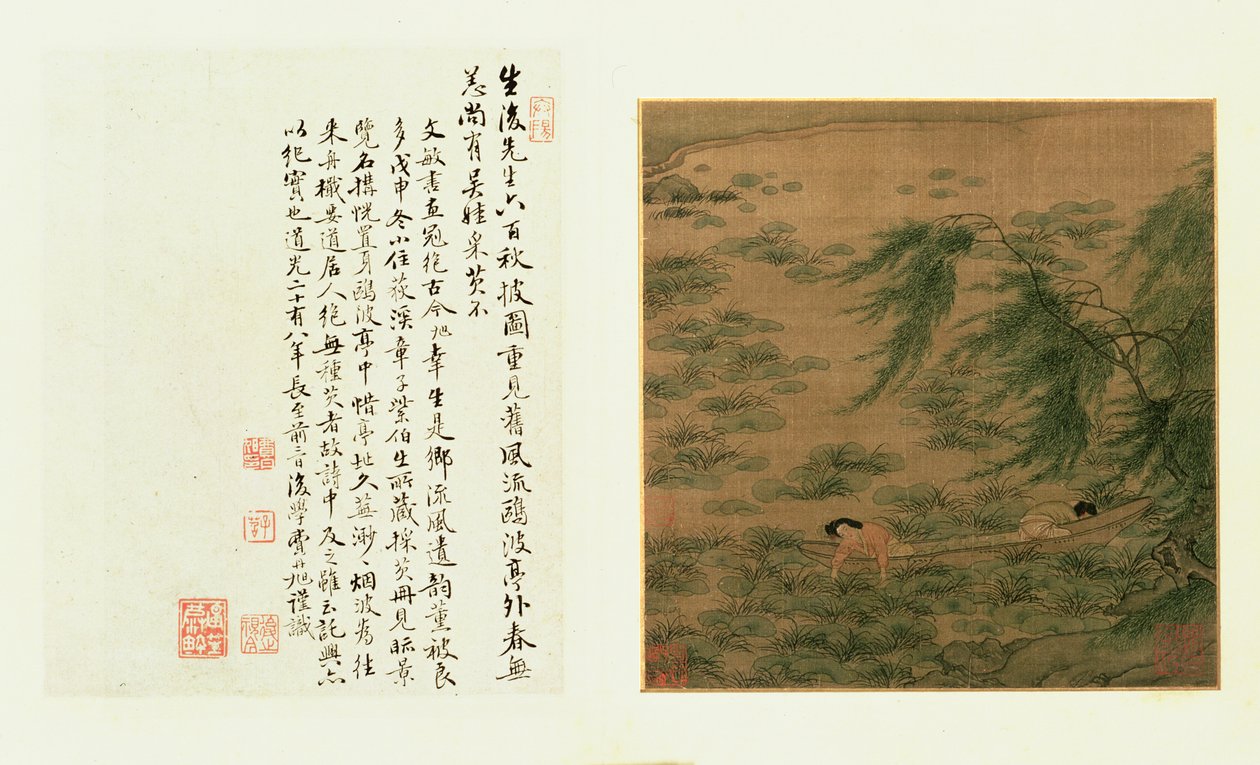 生後先生六百秋披圖重見舊風流鷗波亭外春無
恙尚有吳娃采芡不
文敏書畫冠絕古今旭幸生是鄉流風遺韵薰被良
多戊申冬小住荻溪章子紫伯出所藏採芡冊見眎景
覽名搆恍置身鷗波亭中惜亭址久蕪渺〻烟波為往
來舟檝要道居人絕無種芡者故詩中及之雖云託興亦
以紀實也道光二十有八年長至前三日後學費丹旭謹識
子苕